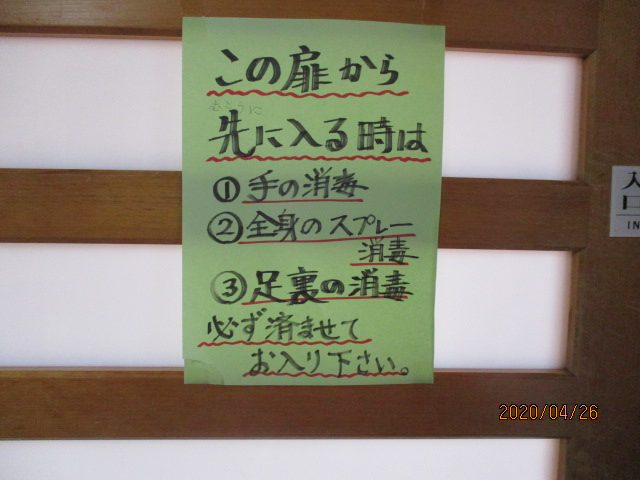 この扉から
むこうに
先に入る時は
①手の消毒
②全身のスプレー
消毒
③足裏の消毒
必ず済ませて
お入り下さい。
入口
IN
2020/04/26